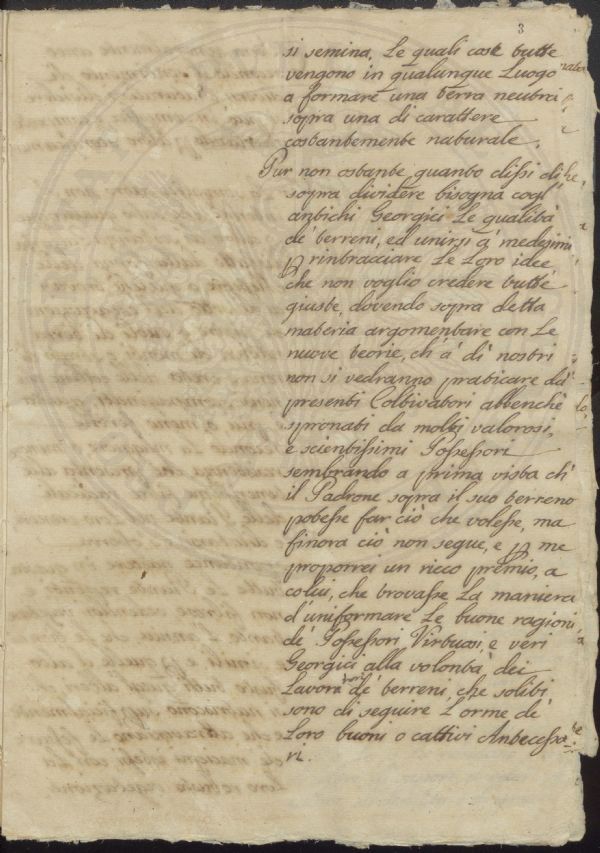 3
si semina. Le quali cose tutte
vengono in qualunque Luogo
a formare una terra neutra
sopra una di carattere
costantemente naturale.
Pur non ostante quanto dissi di
sopra dividere bisogna cogl'
antichi Georgici Le qualità
de' terreni, ed unirsi a' medesimi
ꝑ rintracciare Le Loro idee
che non voglio credere tutte
giuste, dovendo sopra detta
materia argomentare con Le
nuove teorie, ch' a' dì nostri
non si vedranno praticare da'
presenti Coltivatori abbenchè
spronati da molti valorosi,
e scientissimi Possessori
sembrando a prima vista ch'
il Padrone sopra il suo terreno
potesse far ciò che volesse, ma
finora ciò non segue, e ꝑ me
proporrei un ricco premio, a
colui, che trovasse La maniera
d'uniformare Le buone ragioni
de' Possessori Virtuosi, e veri
Georgici alla volontà dei
Lavoratori de' terreni, che soliti
sono di seguire L'orme de'
Loro buoni o cattivi Antecesso
ri.